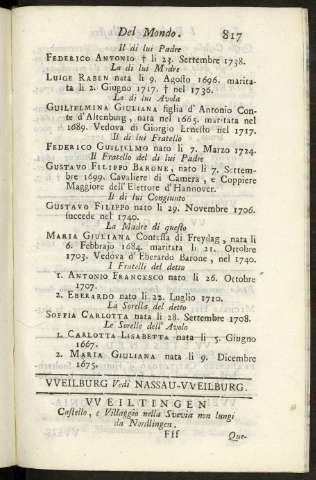 Del Mondo. 817
Il di lui Padre
FEDERICO ANTONIO † li 23. Settembre 1738.
La di lui Madre
LUIGE RABEN nata li 9. Agosto 1696. marita-
ta li 2. Giugno 1717. † nel 1736.
La di lui Avola
GUILIELMINA GIULIANA figlia d'Antonio Con-
te d'Altenburg, nata nel 1665. maritata nel
1689. Vedova di Giorgio Ernesto nel 1717.
Il di lui Fratello
FEDERICO GUILIELMO nato li 7. Marzo 1724.
Il Fratello del di lui Padre
GUSTAVO FILIPPO BARONE, nato li 7. Settem-
bre 1699. Cavaliere di Camera, e Coppiere
Maggiore dell'Elettore d'Hannover.
Il di lui Congiunto
GUSTAVO FILIPPO nato li 29. Novembre 1706.
succede nel 1740.
La Madre di questo
MARIA GIULIANA Contessa di Freydag, nata li
6. Febbrajo 1684. maritata li 21. Ottobre
1703. Vedova d'Eberardo Barone, nel 1740.
I Fratelli del detto
1. ANTONIO FRANCESCO nato li 26. Ottobre
1707.
2. EBERARDO nato li 22. Luglio 1710.
La Sorella del detto
SOFFIA CARLOTTA nata li 28. Settembre 1708.
Le Sorelle dell'Avolo
1. CARLOTTA LISABETTA nata li 5. Giugno
1667.
2. MARIA GIULIANA nata li 9. Dicembre
1675.
VVEILBURG Vedi NASSAU-VVEILBURG.
VVEILTINGEN
Castello, e Villaggio nella Svevia non lungi
da Nordlingen.
Fff Que-